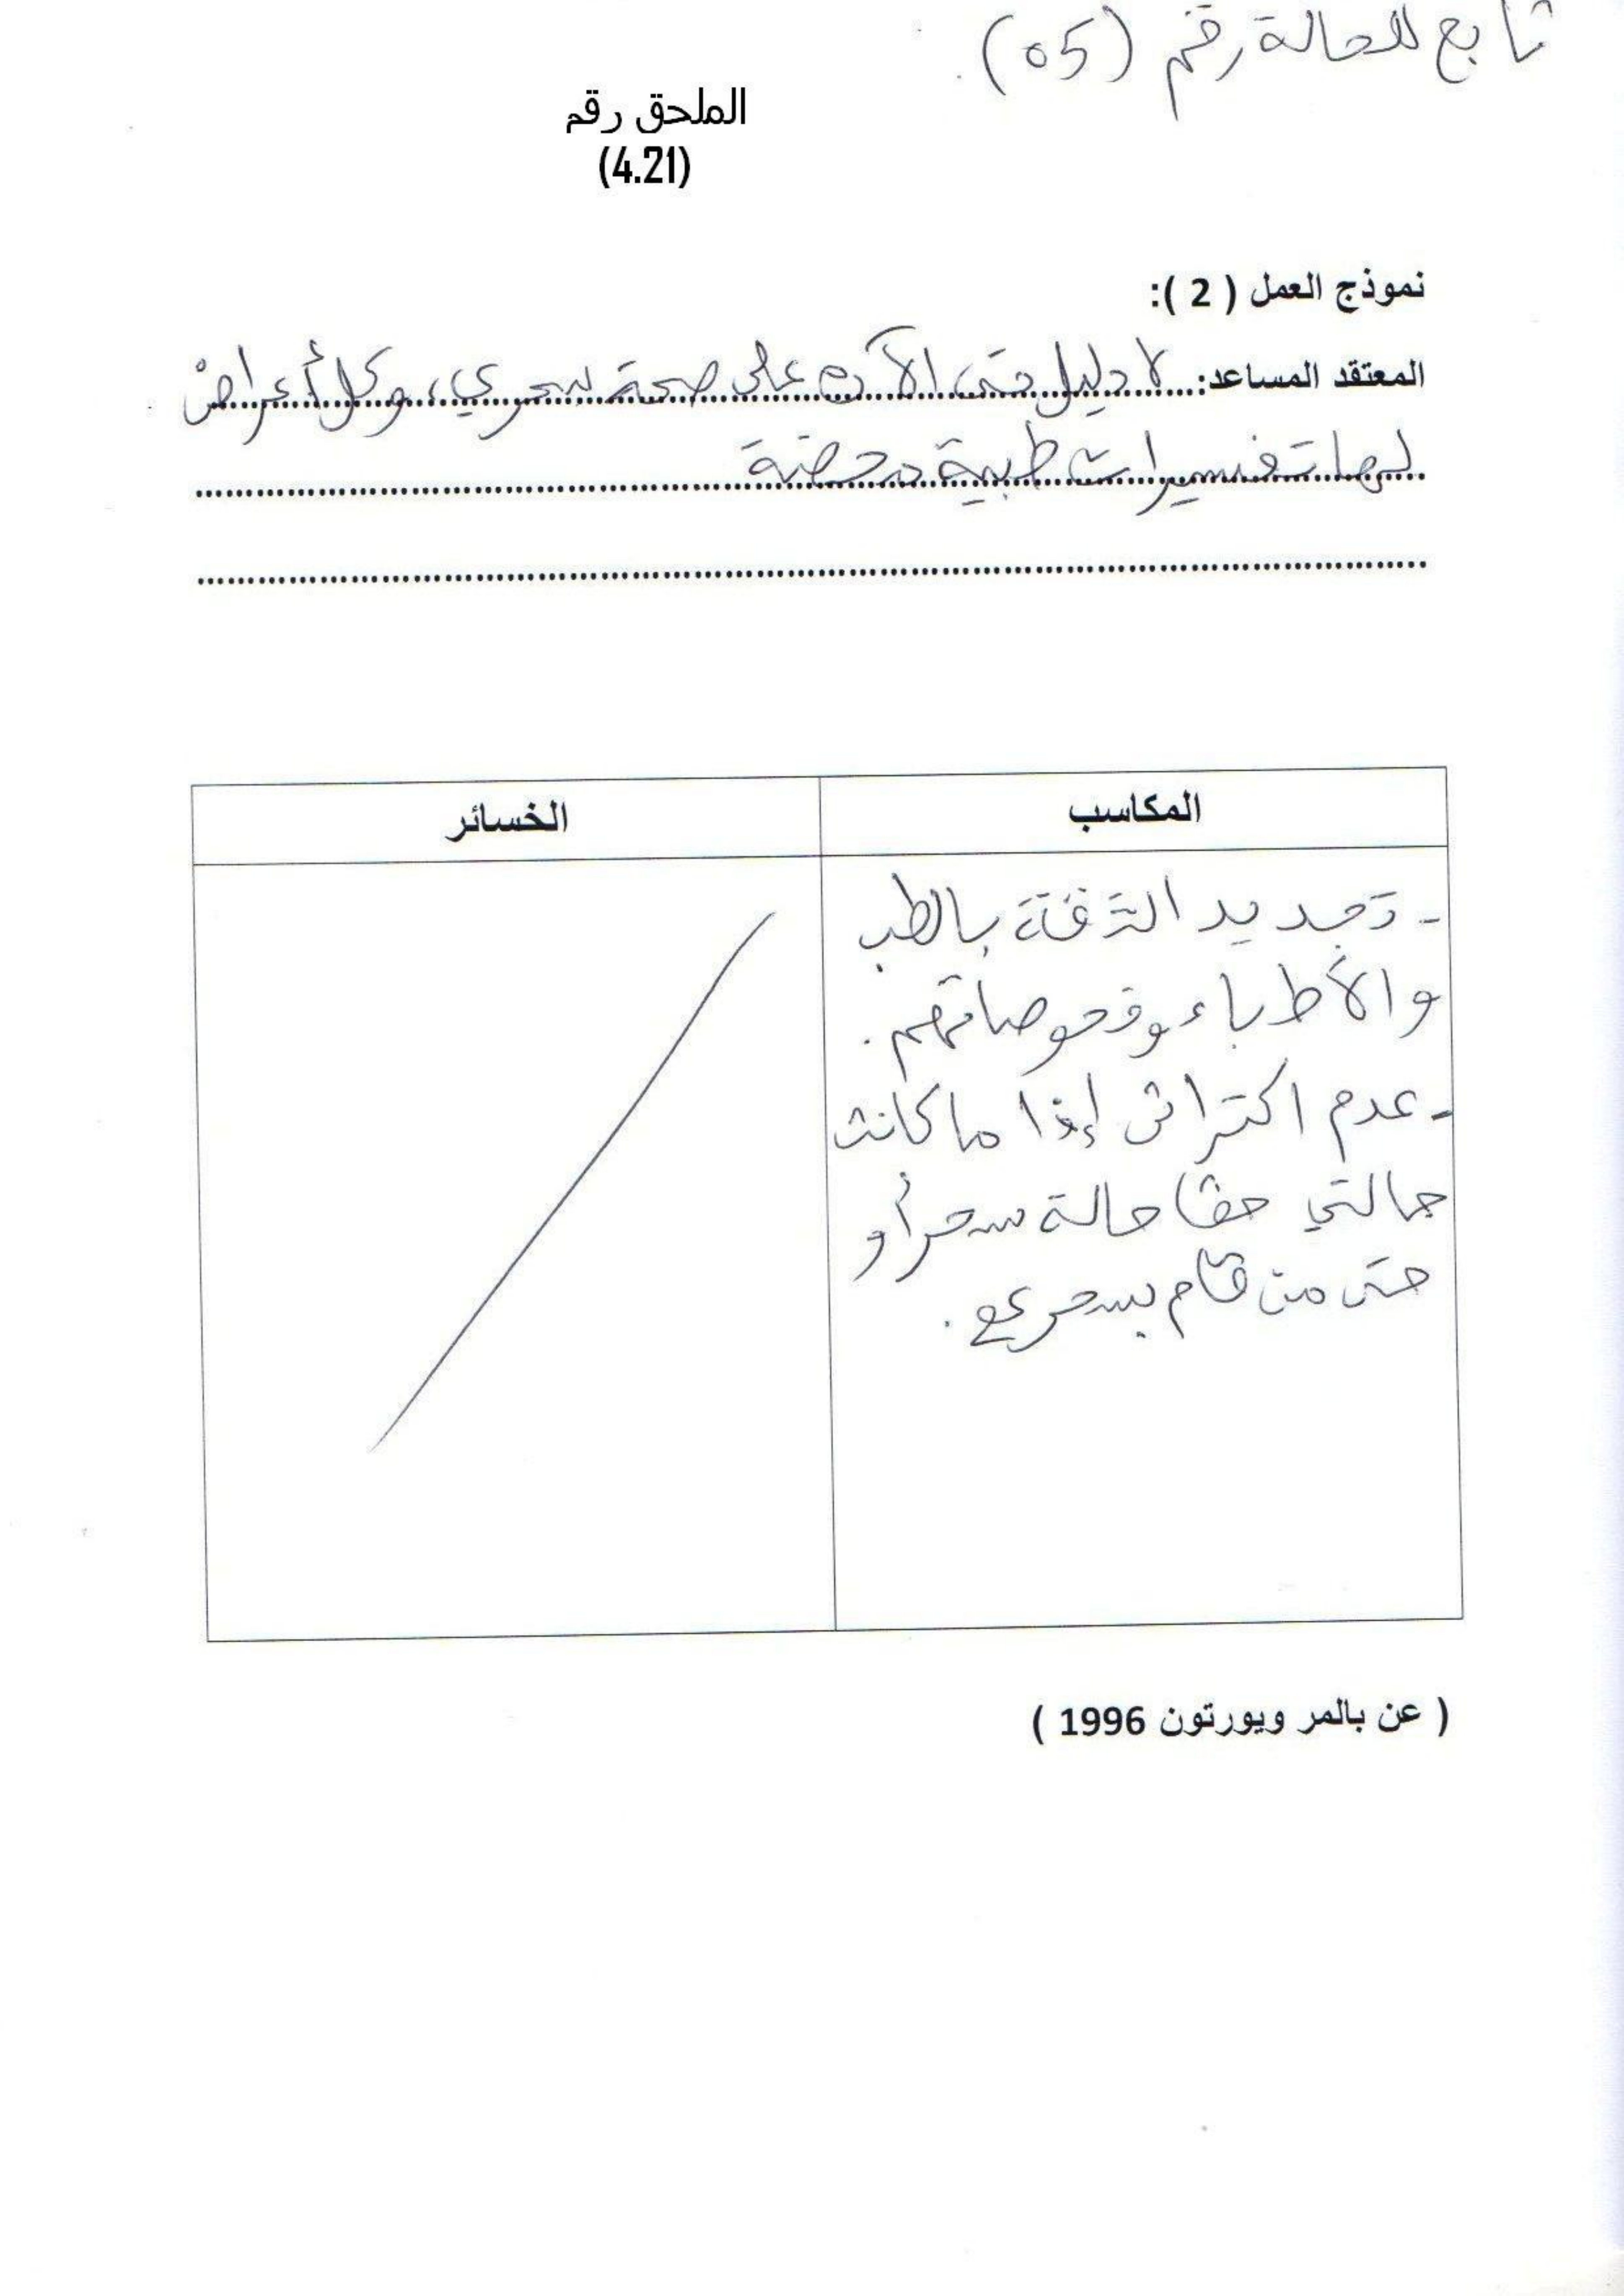 تابع للحالة رقم (05).
الملحق رقم
(4.21)
نموذج العمل ( 2 ):
المعتقد المساعد: لا دليل حتى الآن على صحة سحري، وكل أعراض
لها تفسيرات طبية محضة
المكاسب
الخسائر
- تجديد الثقة بالطب
والأطباء وفحوصاتهم.
- عدم اكتراثي إذا ما كانت
حالتي حقا حالة سحر أو
حتى من قام بسحري.
( عن بالمر ويورتون 1996 )